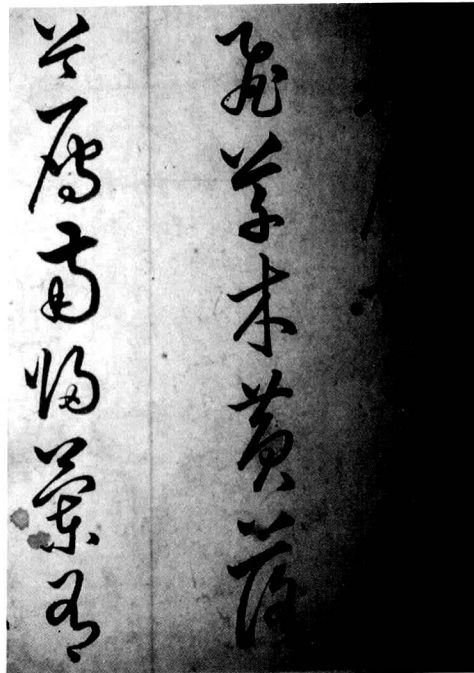 飛草木黃落
兮雁南歸蘭有